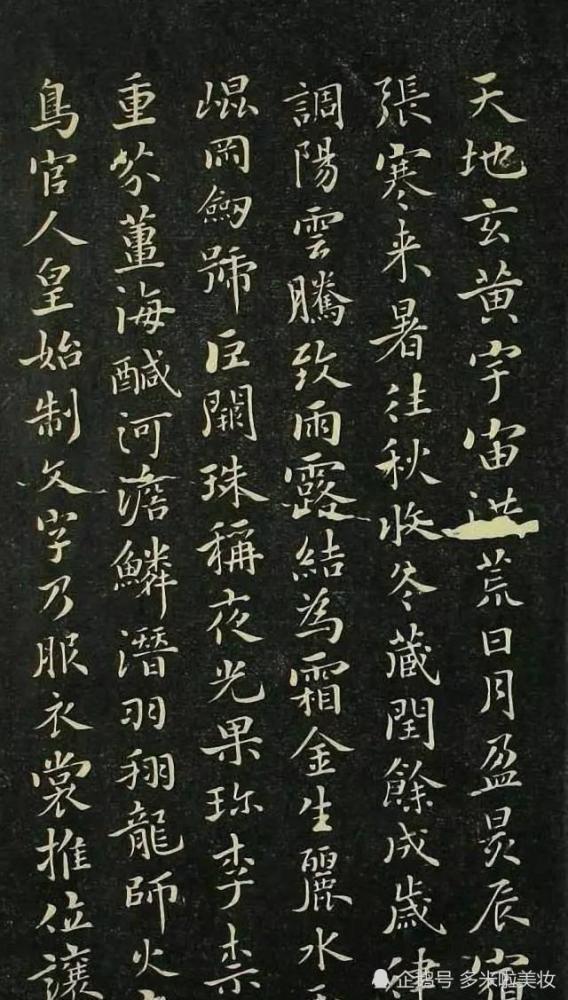 天地玄黃宇宙洪荒日月盈昃辰宿
張寒来暑往秋收冬藏閏餘成歲律
調陽雲騰致雨露結為霜金生麗水
崐岡劒號巨闕珠稱夜光果珍李柰
重芥薑海醎河澹鱗潛羽翔龍師火
鳥官人皇始制文字乃服衣裳推位讓
企鹅号 多米啦美妆